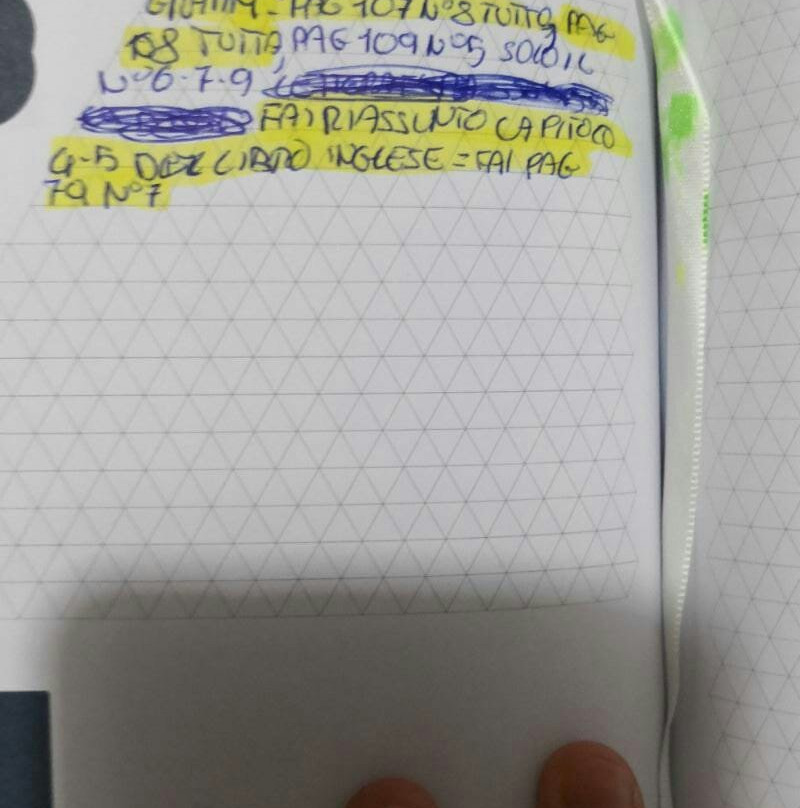 GRAMM = PAG 107 N°8 TUTTO, PAG
108 TUTTA, PAG 109 N°5 SOLO IL
N°6-7-9
FAI RIASSUNTO CAPITOLO
4-5 DEL LIBRO INGLESE = FAI PAG
79 N°7